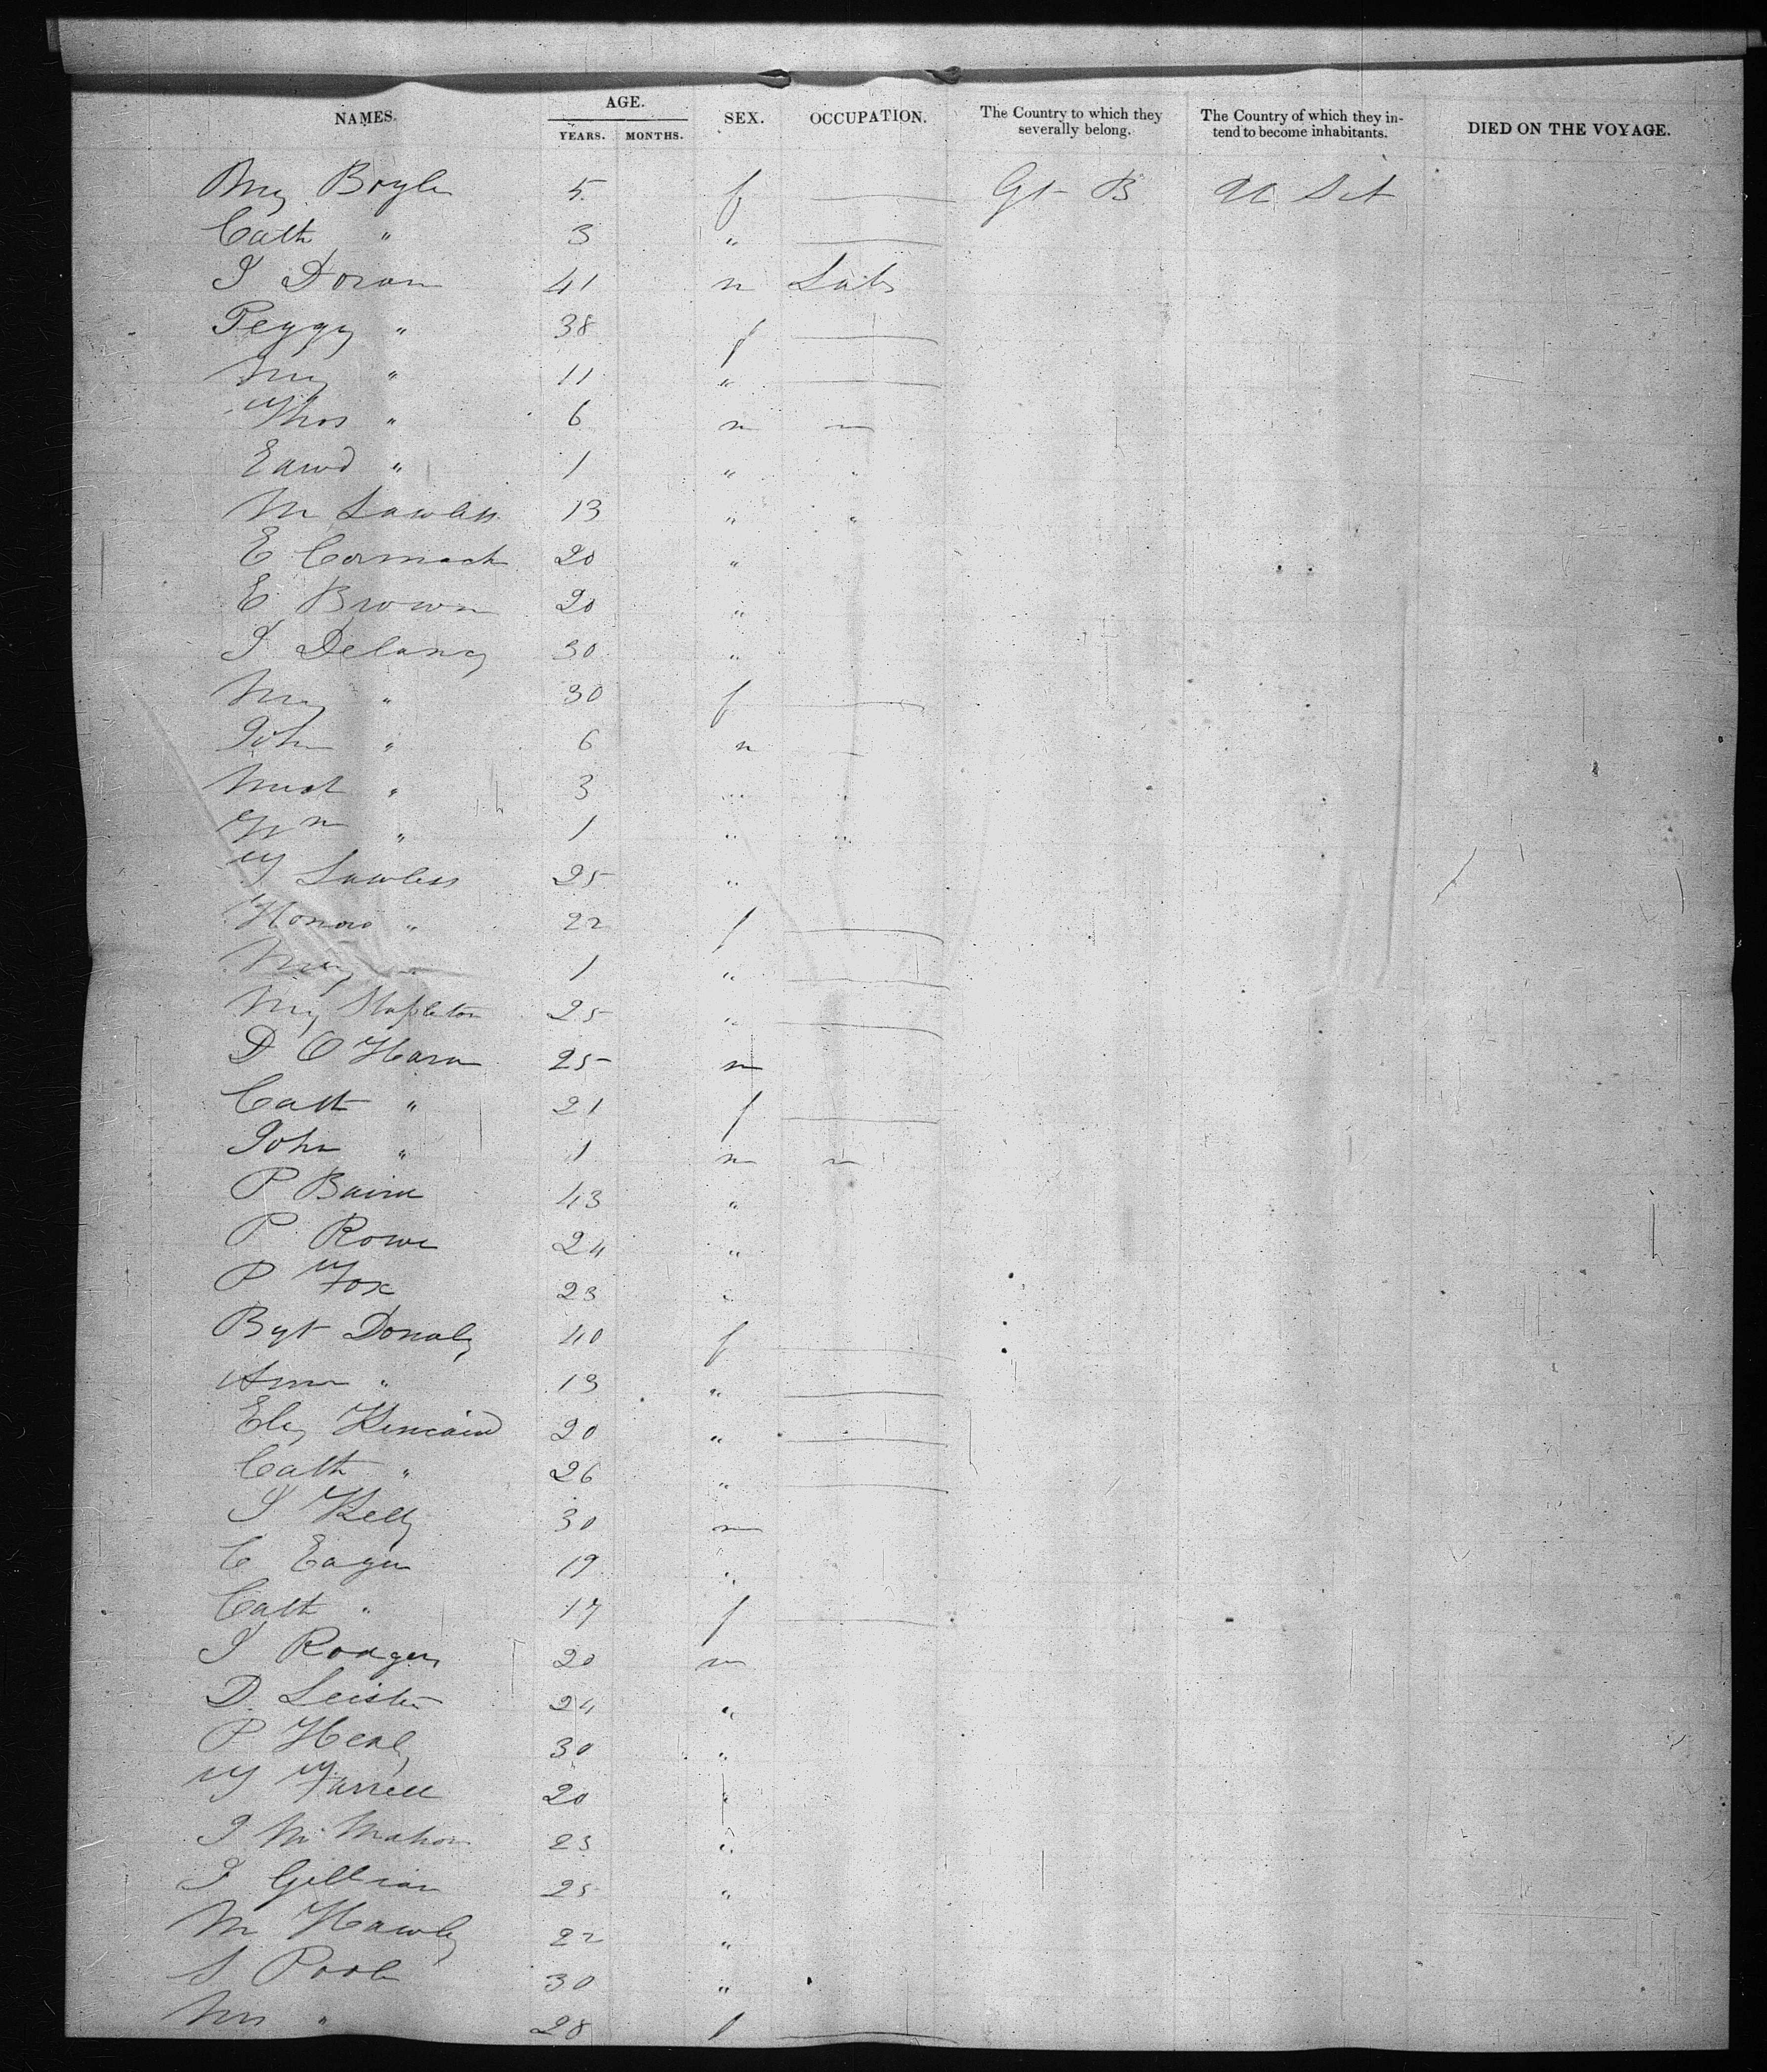 NAMES. AGE. YEARS. MONTHS. SEX. OCCUPATION. The Country to which they severally belong. The Country of which they intend to become inhabitants. DIED ON THE VOYAGE.
Boyle 5 f Gt B U St
Cath " 3 "
J Doran 41 m Lab
Peggy " 38 f
My " 11 "
Thos " 6 m
Eawd " 1 " "
M Lawless 13 " "
E Cormack 20 "
E Brown 20 "
J Delany 30 "
My " 30 f
John " 6 m
Mich " 3 " "
Wm " 1 " "
T Lawless 25 "
Honora " 22 f
My " 1 "
My Stapleton 25 "
D O'Hara 25 m
Cath " 21 f
John " 1 m
P 43 "
P Rowe 24 "
P Fox 23 "
Bgt Donaly 40 f
Ann " 13 "
Elz Kincaid 20 "
Cath " 26 "
J Kelly 30 m
C Eagan 19 "
Cath " 17 f
J Rodgers 20 m
D. Leister 24 "
P Healy 30 "
T Farrell 20 "
J McMahon 23 "
J Gillian 25 "
M Hawly 22 "
S Poole 30 "
Mrs " 28 f